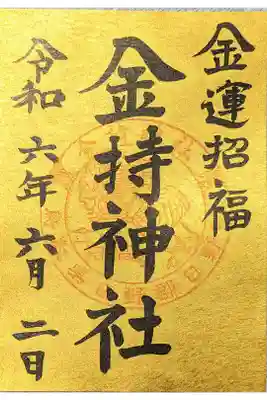 金運招福
金持神社
令和六年六月二日